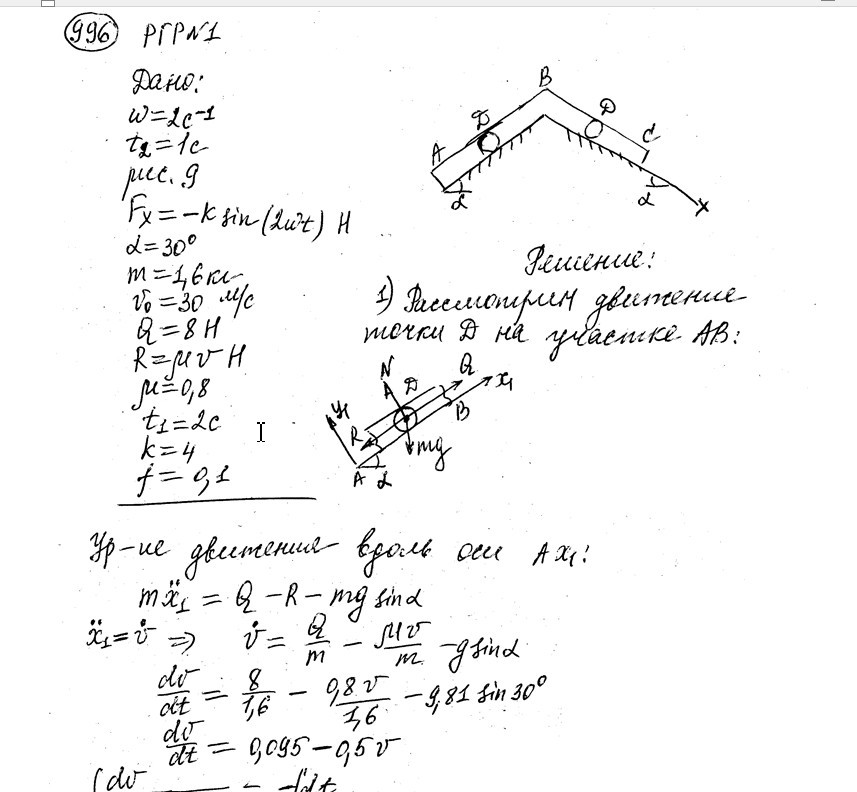 996 РГР№1
Дано:
ω=2c⁻¹
t₂=1c
рис. 9
Fx=-k sin(2ωt) H
α=30°
m=1,6кг
v₀=30 м/с
Q=8 H
R=μv H
μ=0,8
t₁=2c
k=4
f=0,1
B
D D
A C
α α
x
Решение:
1) Рассмотрим движение
точки D на участке AB:
N D Q x₁
y₁ B
R mg
A α
Ур-ие движения вдоль оси Ax₁:
mẍ₁ = Q - R - mg sinα
ẍ₁=v̇ => v̇ = Q/m - μv/m - g sinα
dv/dt = 8/1,6 - 0,8v/1,6 - 9,81 sin30°
dv/dt = 0,095 - 0,5v